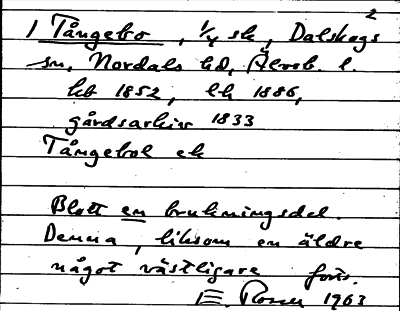 2
1 Tångebo, 1/4 sk, Dalskogs
sn, Nordals hd, Älvsb. l.
kb 1852, lk 1886,
gårdsarkiv 1833
Tångebol ek
Blott en brukningsdel.
Denna, liksom en äldre
något västligare forts.
E. Rosell 1963